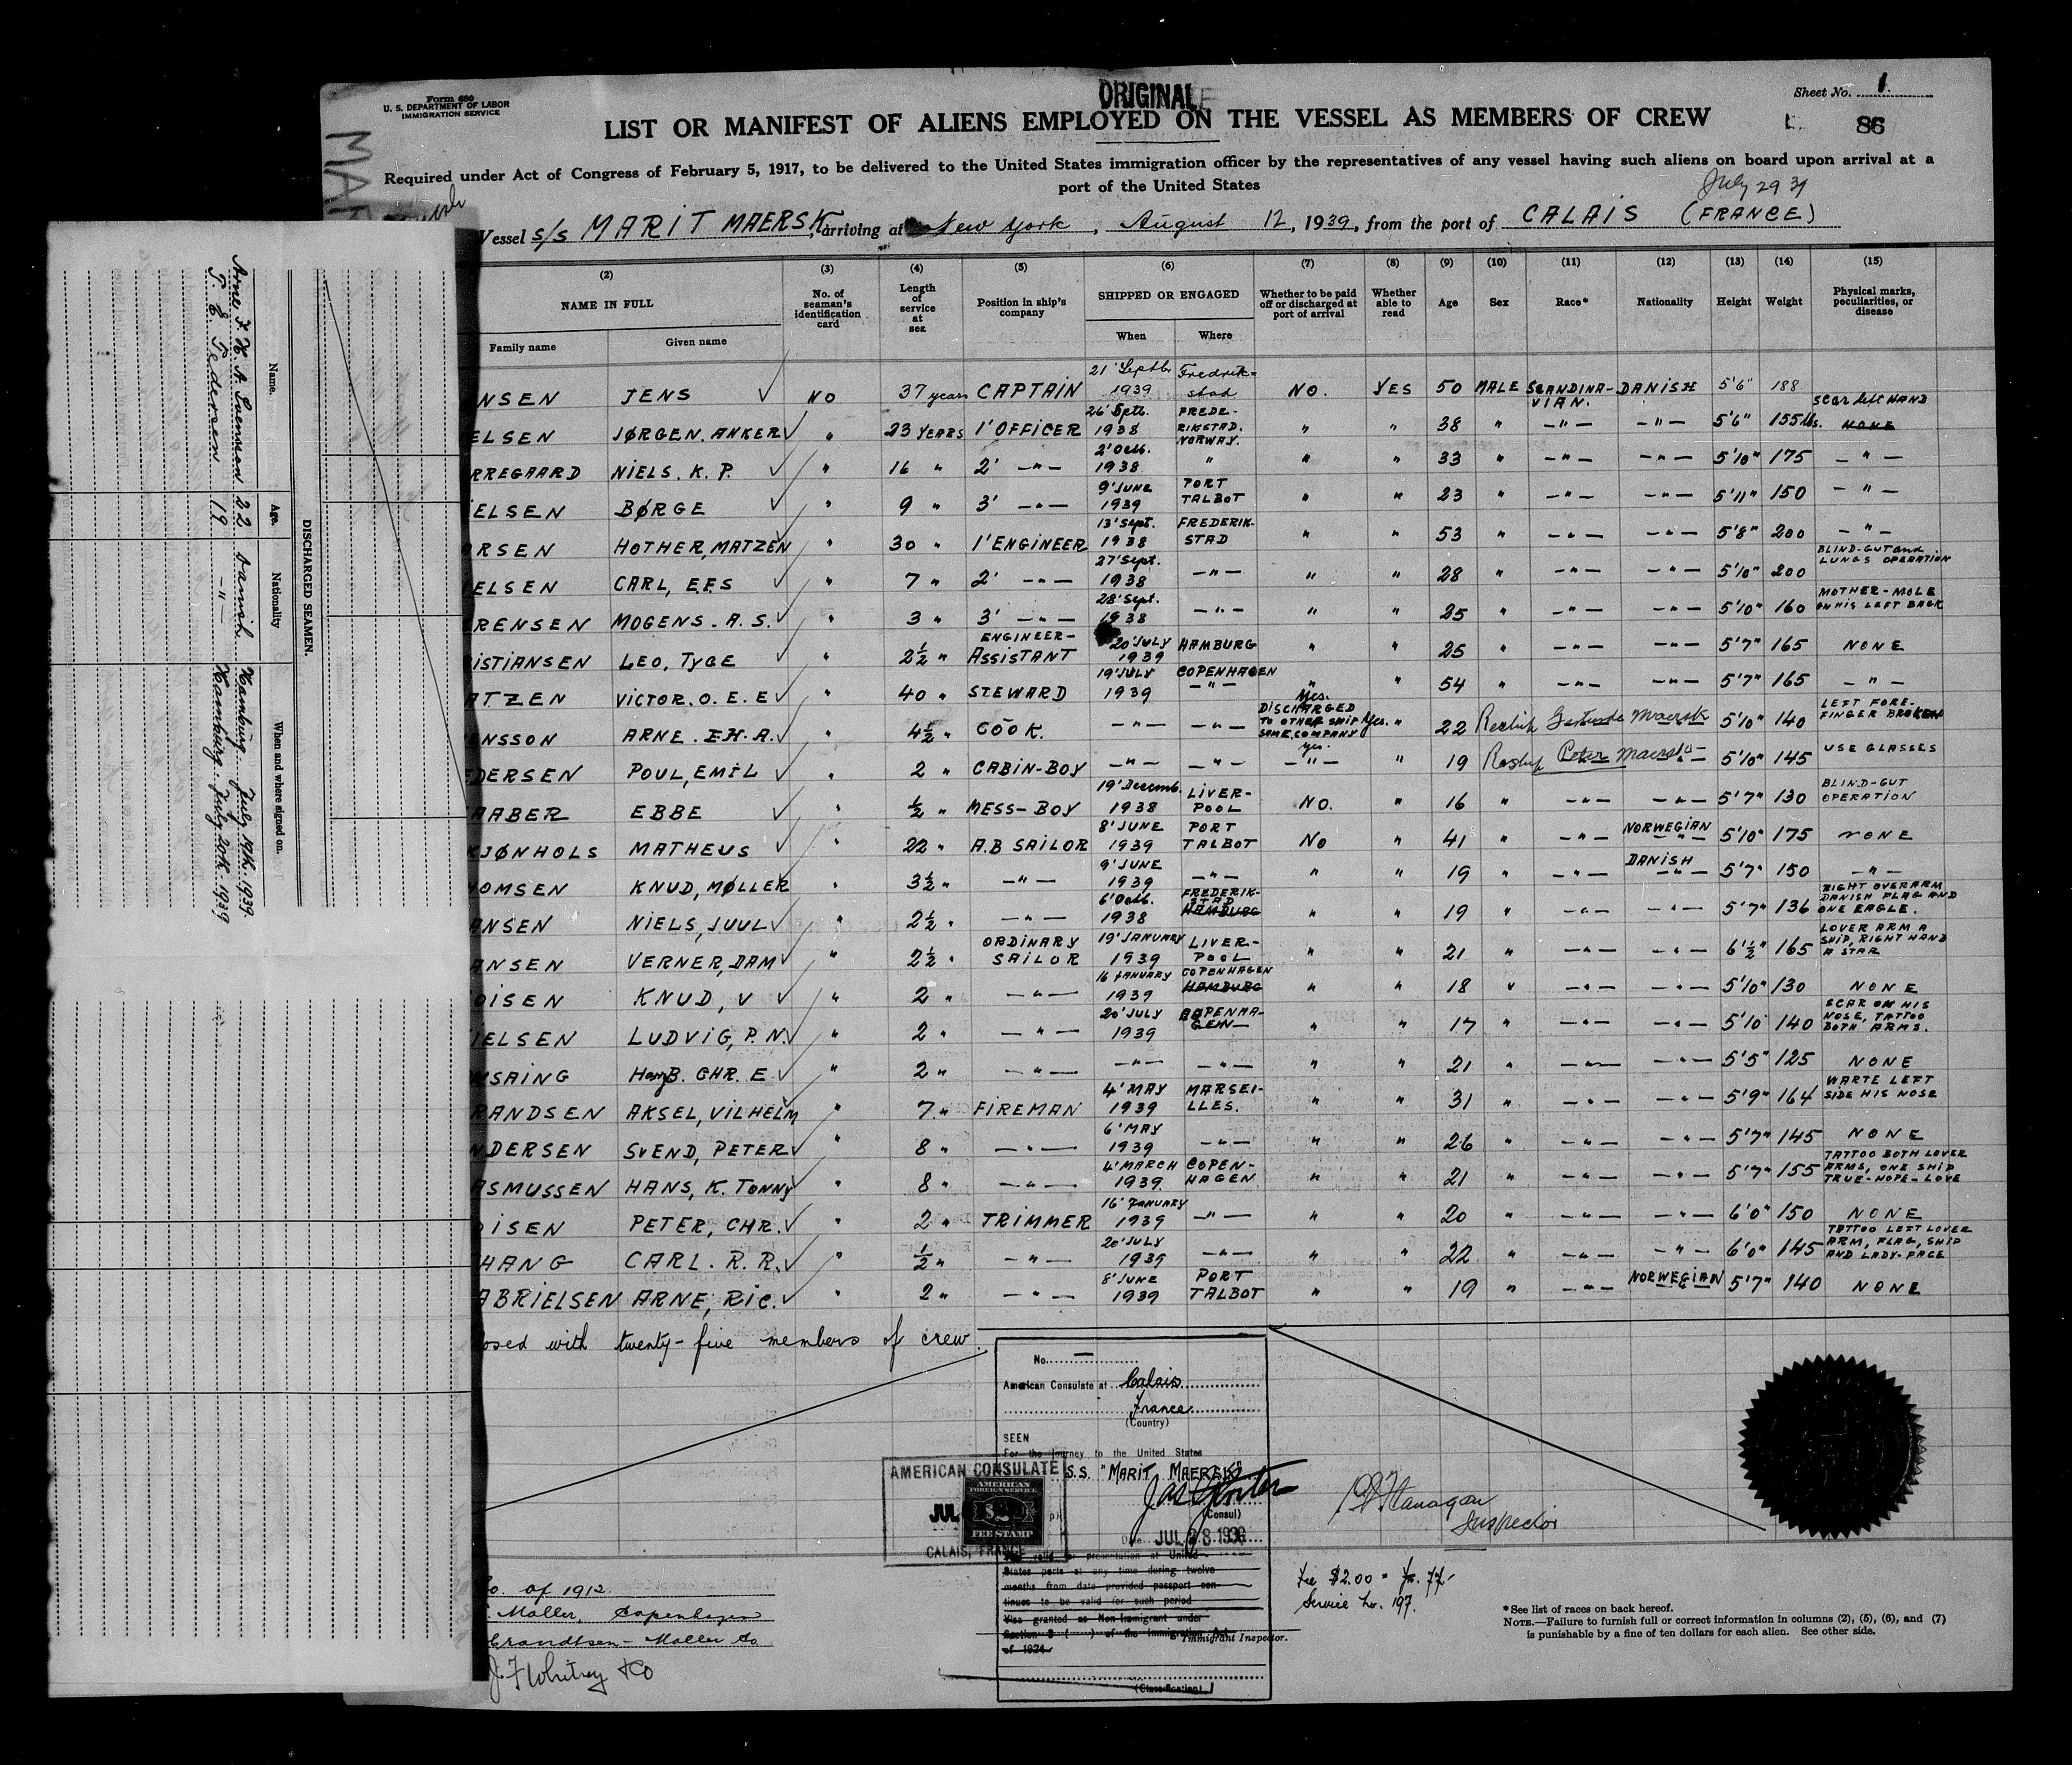 Form 680
U. S. DEPARTMENT OF LABOR
IMMIGRATION SERVICE
ORIGINAL
Sheet No. 1
86
LIST OR MANIFEST OF ALIENS EMPLOYED ON THE VESSEL AS MEMBERS OF CREW
Required under Act of Congress of February 5, 1917, to be delivered to the United States immigration officer by the representatives of any vessel having such aliens on board upon arrival at a
port of the United States
July 29 39
Vessel S/S MARIT MAERSK, arriving at New York, August 12, 1939, from the port of CALAIS (FRANCE)
(2) (3) (4) (5) (6) (7) (8) (9) (10) (11) (12) (13) (14) (15)
NAME IN FULL
Family name
Given name
No. of seaman's identification card
Length of service at sea
Position in ship's company
SHIPPED OR ENGAGED
When
Where
Whether to be paid off or discharged at port of arrival
Whether able to read
Age
Sex
Race*
Nationality
Height
Weight
Physical marks, peculiarities, or disease
NSEN JENS NO 37 years CAPTAIN 21' Septbr 1939 Fredrik=stad NO. YES 50 MALE SCANDINA-VIAN. DANISH 5'6" 188
ELSEN JØRGEN, ANKER " 23 YEARS 1' OFFICER 26' Sptb. 1938 FREDE-RIKSTAD. NORWAY. " " 38 " -"- -"- 5'6" 155 lbs. SCAR left HAND NONE
RREGAARD NIELS. K. P. " 16 " 2' -"- 2' Octb. 1938 " " " 33 " -"- -"- 5'10" 175 -"-
ELSEN BØRGE " 9 " 3' -"- 9' JUNE 1939 PORT TALBOT " " 23 " -"- -"- 5'11" 150 -"-
ARSEN HOTHER, MATZEN " 30 " 1' ENGINEER 13' Sept. 1938 FREDERIK-STAD " " 53 " -"- -"- 5'8" 200 -"-
ELSEN CARL, E.F.S " 7 " 2' -"- 27' Sept. 1938 -"- " " 28 " -"- -"- 5'10" 200 BLIND-GUT and LUNGS OPERATION
RENSEN MOGENS. A. S. " 3 " 3' -"- 28' Sept. 1938 -"- " " 25 " -"- -"- 5'10" 160 MOTHER-MOLE ON HIS LEFT BACK
ISTIANSEN LEO, TYGE " 2½ " ENGINEER-ASSISTANT 20' JULY 1939 HAMBURG " " 25 " -"- -"- 5'7" 165 NONE
ATZEN VICTOR. O. E. E " 40 " STEWARD 19' JULY 1939 COPENHAGEN -"- " " 54 " -"- -"- 5'7" 165 -"-
NSSON ARNE. F.H. A. " 4½ " COOK. -"- -"- Yes. DISCHARGED TO OTHER SHIP SAME COMPANY Yes. " 22 Reship Gertrude Maersk 5'10" 140 LEFT FORE-FINGER BROKEN
DERSEN POUL, EMIL " 2 " CABIN-BOY -"- -"- yes. -"- " 19 Reship Peter Maersk 5'10" 145 USE GLASSES
AABER EBBE " ½ " MESS-BOY 19' Decemb. 1938 LIVER-POOL NO. " 16 " -"- -"- 5'7" 130 BLIND-GUT OPERATION
KJØNHOLS MATHEUS " 22 " A.B SAILOR 8' JUNE 1939 PORT TALBOT NO " 41 " -"- NORWEGIAN -"- 5'10" 175 NONE
OMSEN KNUD, MØLLER " 3½ " -"- 9' JUNE 1939 -"- " " 19 " -"- DANISH -"- 5'7" 150 -"-
ANSEN NIELS, JUUL " 2½ " -"- 6' Octb. 1938 FREDERIK-STAD HAMBURG " " 19 " -"- -"- 5'7" 136 RIGHT OVERARM DANISH FLAG AND ONE EAGLE.
ANSEN VERNER, DAM " 2½ " ORDINARY SAILOR 19' JANUARY 1939 LIVER-POOL " " 21 " -"- -"- 6'½" 165 LOVER ARM A SHIP, RIGHT HAND A STAR
OISEN KNUD, V " 2 " -"- 16 JANUARY 1939 COPENHAGEN HAMBURG " " 18 " -"- -"- 5'10" 130 NONE
IELSEN LUDVIG, P. N. " 2 " -"- 20' JULY 1939 COPENHA-GEN- " " 17 " -"- -"- 5'10 140 SCAR ON HIS NOSE, TATTOO BOTH ARMS.
MSAING Harry B. CHR. E " 2 " -"- -"- -"- " " 21 " -"- -"- 5'5" 125 NONE
RANDSEN AKSEL, VILHELM " 7 " FIREMAN 4' MAY 1939 MARSEI-LLES. " " 31 " -"- -"- 5'9" 164 WARTE LEFT SIDE HIS NOSE
NDERSEN SVEND, PETER " 8 " -"- 6' MAY 1939 -"- " " 26 " -"- -"- 5'7" 145 NONE
ASMUSSEN HANS, K. TONNY " 8 " -"- 4' MARCH 1939. COPEN-HAGEN " " 21 " -"- -"- 5'7" 155 TATTOO BOTH LOVER ARMS, ONE SHIP TRUE-HOPE-LOVE
OISEN PETER, CHR. " 2 " TRIMMER 16' JANUARY 1939 -"- " " 20 " -"- -"- 6'0" 150 NONE
HANG CARL. R. R. " ½ " -"- 20' JULY 1939 -"- " " 22 " -"- -"- 6'0" 145 TATTOO LEFT LOVER ARM, FLAG, SHIP AND LADY-FACE
ABRIELSEN ARNE, RIC. " 2 " -"- 8' JUNE 1939 PORT TALBOT " " 19 " -"- NORWEGIAN 5'7" 140 NONE
osed with twenty-five members of crew.
No. —
American Consulate at Calais
France
(Country)
SEEN
For the journey to the United States
S.S. "MARIT MAERSK"
(Consul)
Date JUL 28 1939
AMERICAN CONSULATE
JUL
CALAIS, FRANCE
AMERICAN
FOREIGN SERVICE
$2
FEE STAMP
valid for presentation at United
States ports at any time during twelve
months from date provided passport con-
tinues to be valid for such period
Visa granted as Non-Immigrant under
Section 3 ( ) of the Immigration Act
of 1924
Immigrant Inspector.
(Classification)
Flanagan
Inspector
Fee $2.00 = fr. 77-
Service No. 197.
Co. of 1912
Moller, Copenhagen
Moller Co
J F Whitney & Co
*See list of races on back hereof.
NOTE.—Failure to furnish full or correct information in columns (2), (5), (6), and (7)
is punishable by a fine of ten dollars for each alien. See other side.
DISCHARGED SEAMEN.
Name. Age. Nationality When and where signed on.
Arne F. H. A. Suenson 22 Danish Hamburg. July 19th. 1939.
P. E. Pedersen 19 -"- Hamburg. July 20th. 1939